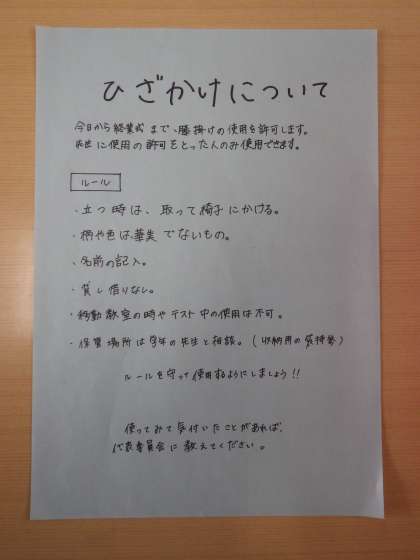 ひざかけについて
今日から終業式まで、膝掛けの使用を許可します。
先生に使用の許可をとった人のみ使用できます。
ルール
・立つ時は、取って椅子にかける。
・柄や色は華美でないもの。
・名前の記入。
・貸し借りなし。
・移動教室の時やテスト中の使用は不可。
・保管場所は学年の先生と相談。(収納用の袋持参)
ルールを守って使用するようにしましょう!!
使ってみて気付いたことがあれば、
代表委員会に教えてください。